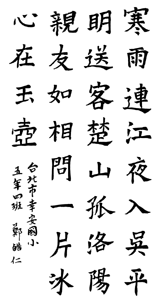 寒雨連江夜入吳平
明送客楚山孤洛陽
親友如相問一片冰
心在玉壺
台北市幸安國小
五年四班 鄭皓仁